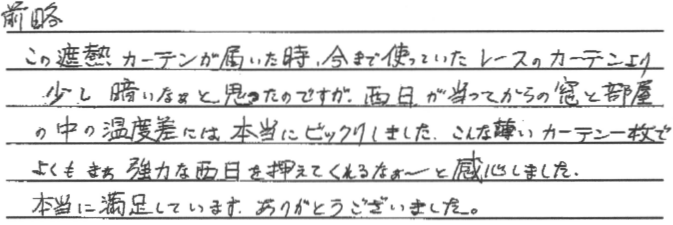 前略
この遮熱カーテンが届いた時、今まで使っていたレースのカーテンより
少し暗いなぁと思ったのですが、西日が当ってからの窓と部屋
の中の温度差には、本当にビックリしました。こんな薄いカーテン一枚で
よくもまぁ強力な西日を押えてくれるなぁ〜と感心しました。
本当に満足しています。ありがとうございました。